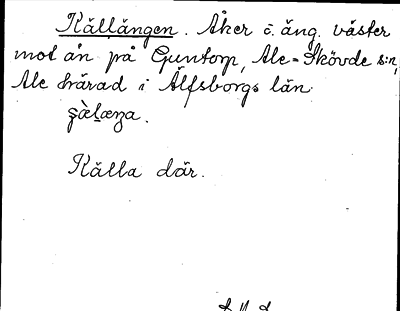 Källängen. Åker o. äng. väster
mot ån på Guntorp, Ale-Skövde s:n,
Ale härad i Älfsborgs län.
Källa där.